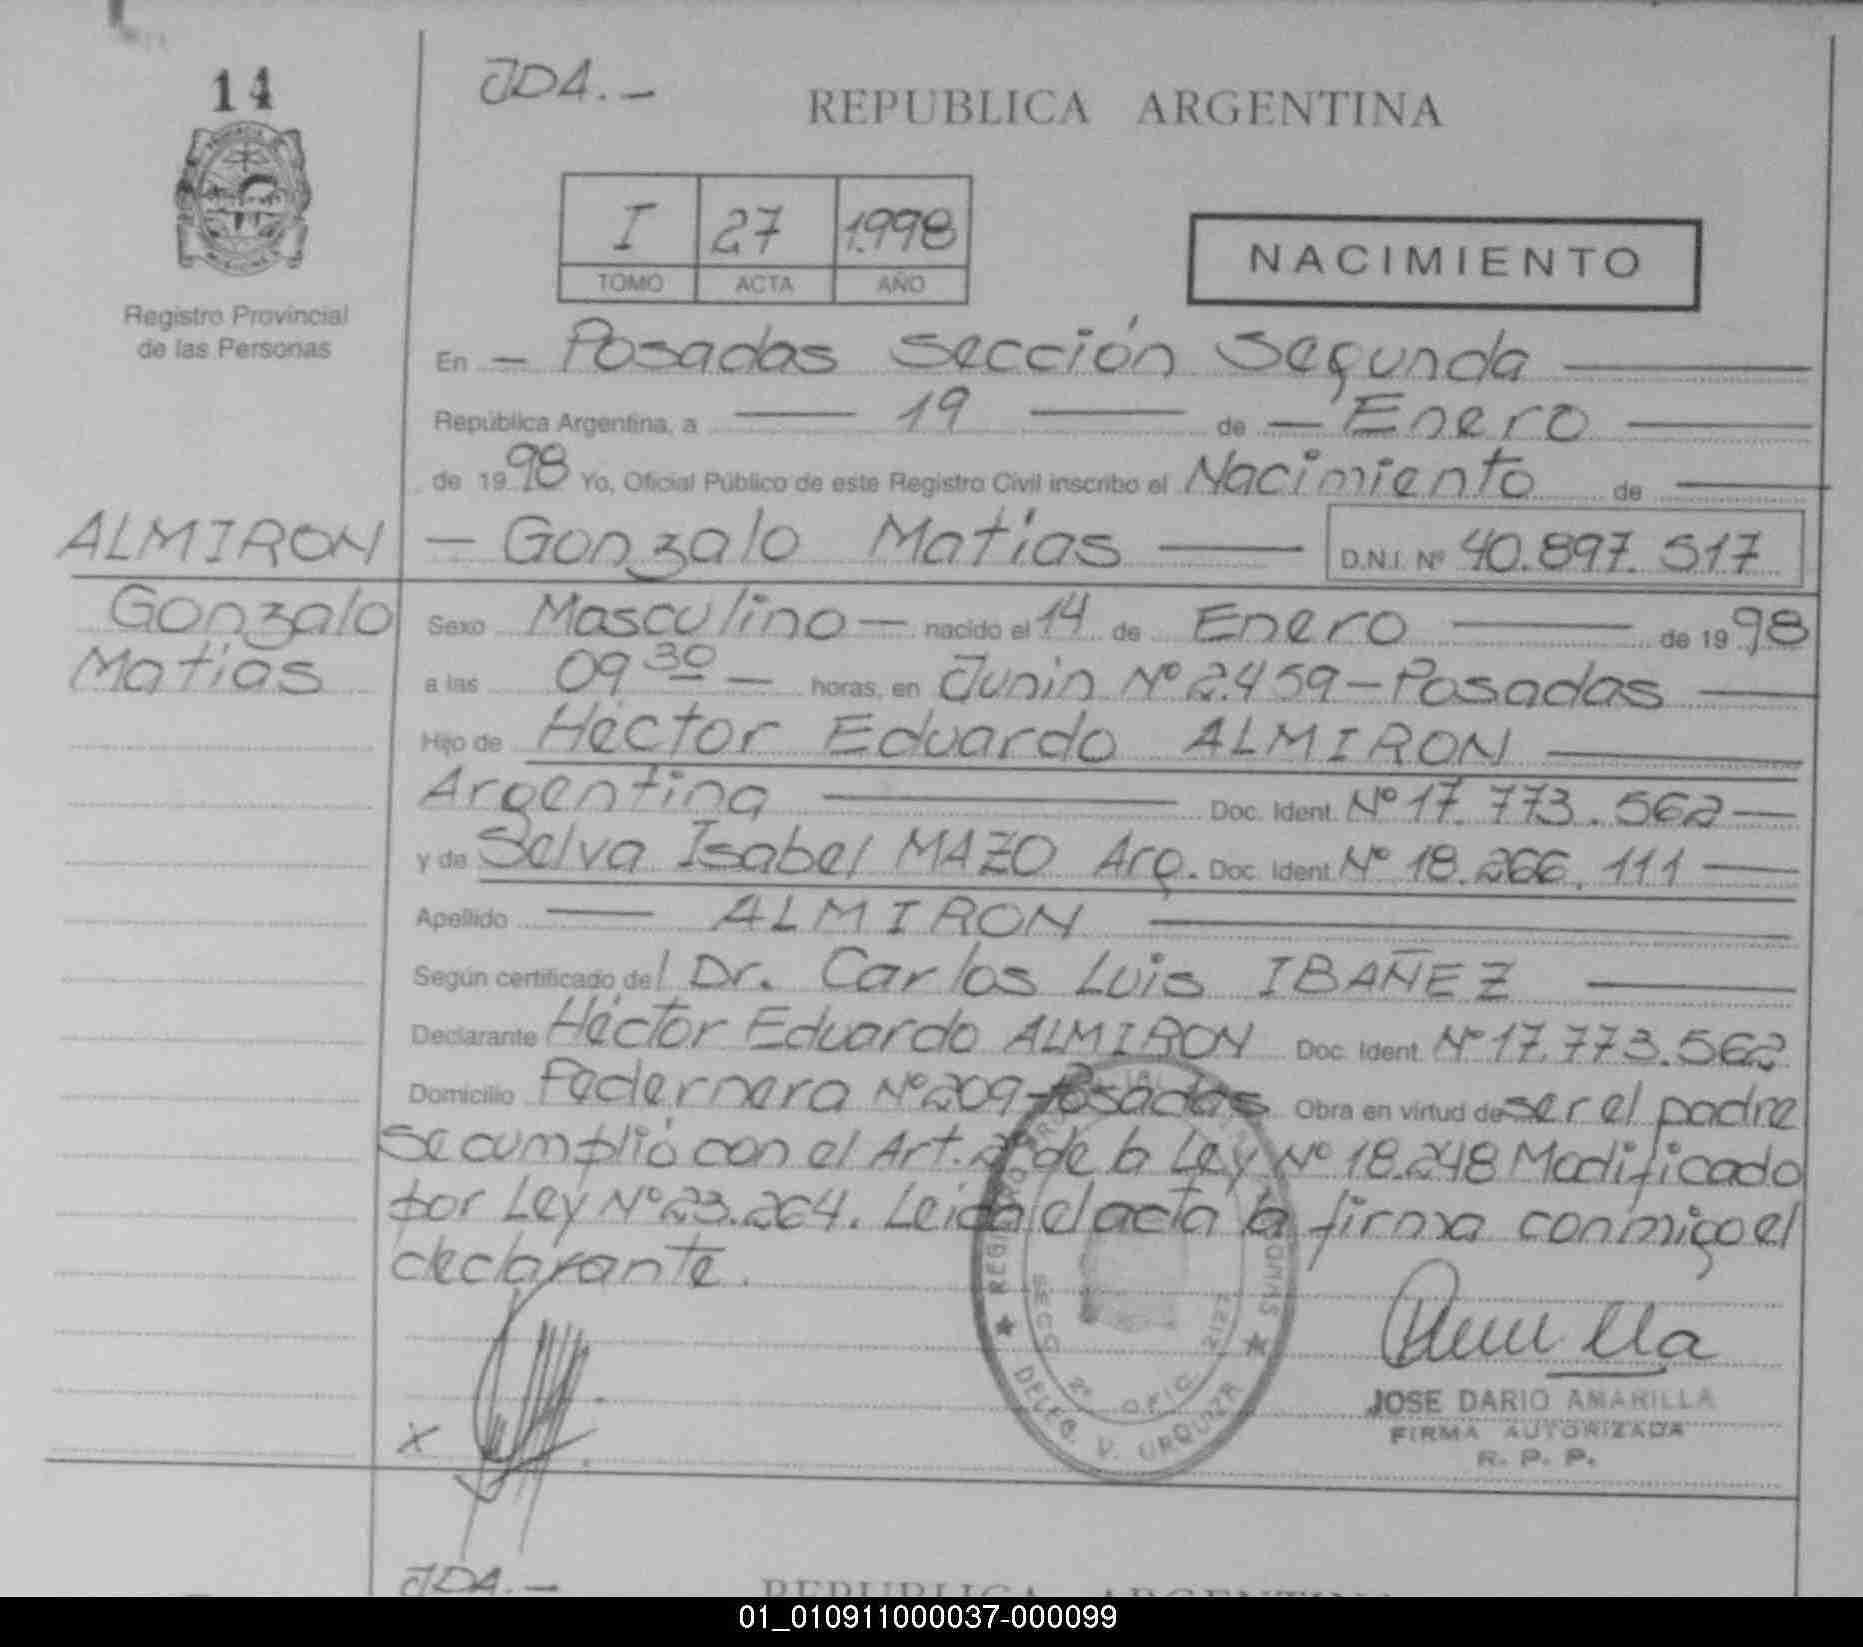 14
JDA.-
REPUBLICA ARGENTINA
I 27 1.998
TOMO ACTA AÑO
NACIMIENTO
Registro Provincial
de las Personas
En — Posadas Sección Segunda
República Argentina, a 19 de — Enero
de 1998 Yo, Oficial Público de este Registro Civil inscribo el Nacimiento de
ALMIRON — Gonzalo Matías — D.N.I. Nº 40.897.517
Gonzalo
Matías
Sexo Masculino — nacido el 14 de Enero de 1998
a las 09 30 — horas, en Junin Nº 2.459 - Posadas
Hijo de Héctor Eduardo ALMIRON
Argentina Doc. Ident. Nº 17.773.562 —
y de Selva Isabel MAZO Arg. Doc. Ident. Nº 18.266.111
Apellido — ALMIRON
Según certificado del Dr. Carlos Luis IBAÑEZ
Declarante Héctor Eduardo ALMIRON Doc. Ident. Nº 17.773.562
Domicilio Pedernera Nº 209 - Posadas Obra en virtud de ser el padre
se cumplió con el Art. de la Ley Nº 18.248 Modificado
por Ley Nº 23.264. Leida el acta la firma conmigo el
declarante.
SECC 2ª OFIC. 2127
DELEG. V. URQUIZA
X
JOSE DARIO AMARILLA
FIRMA AUTORIZADA
R. P. P.
JDA.-
REPUBLICA ARGENTINA
01_010911000037-000099